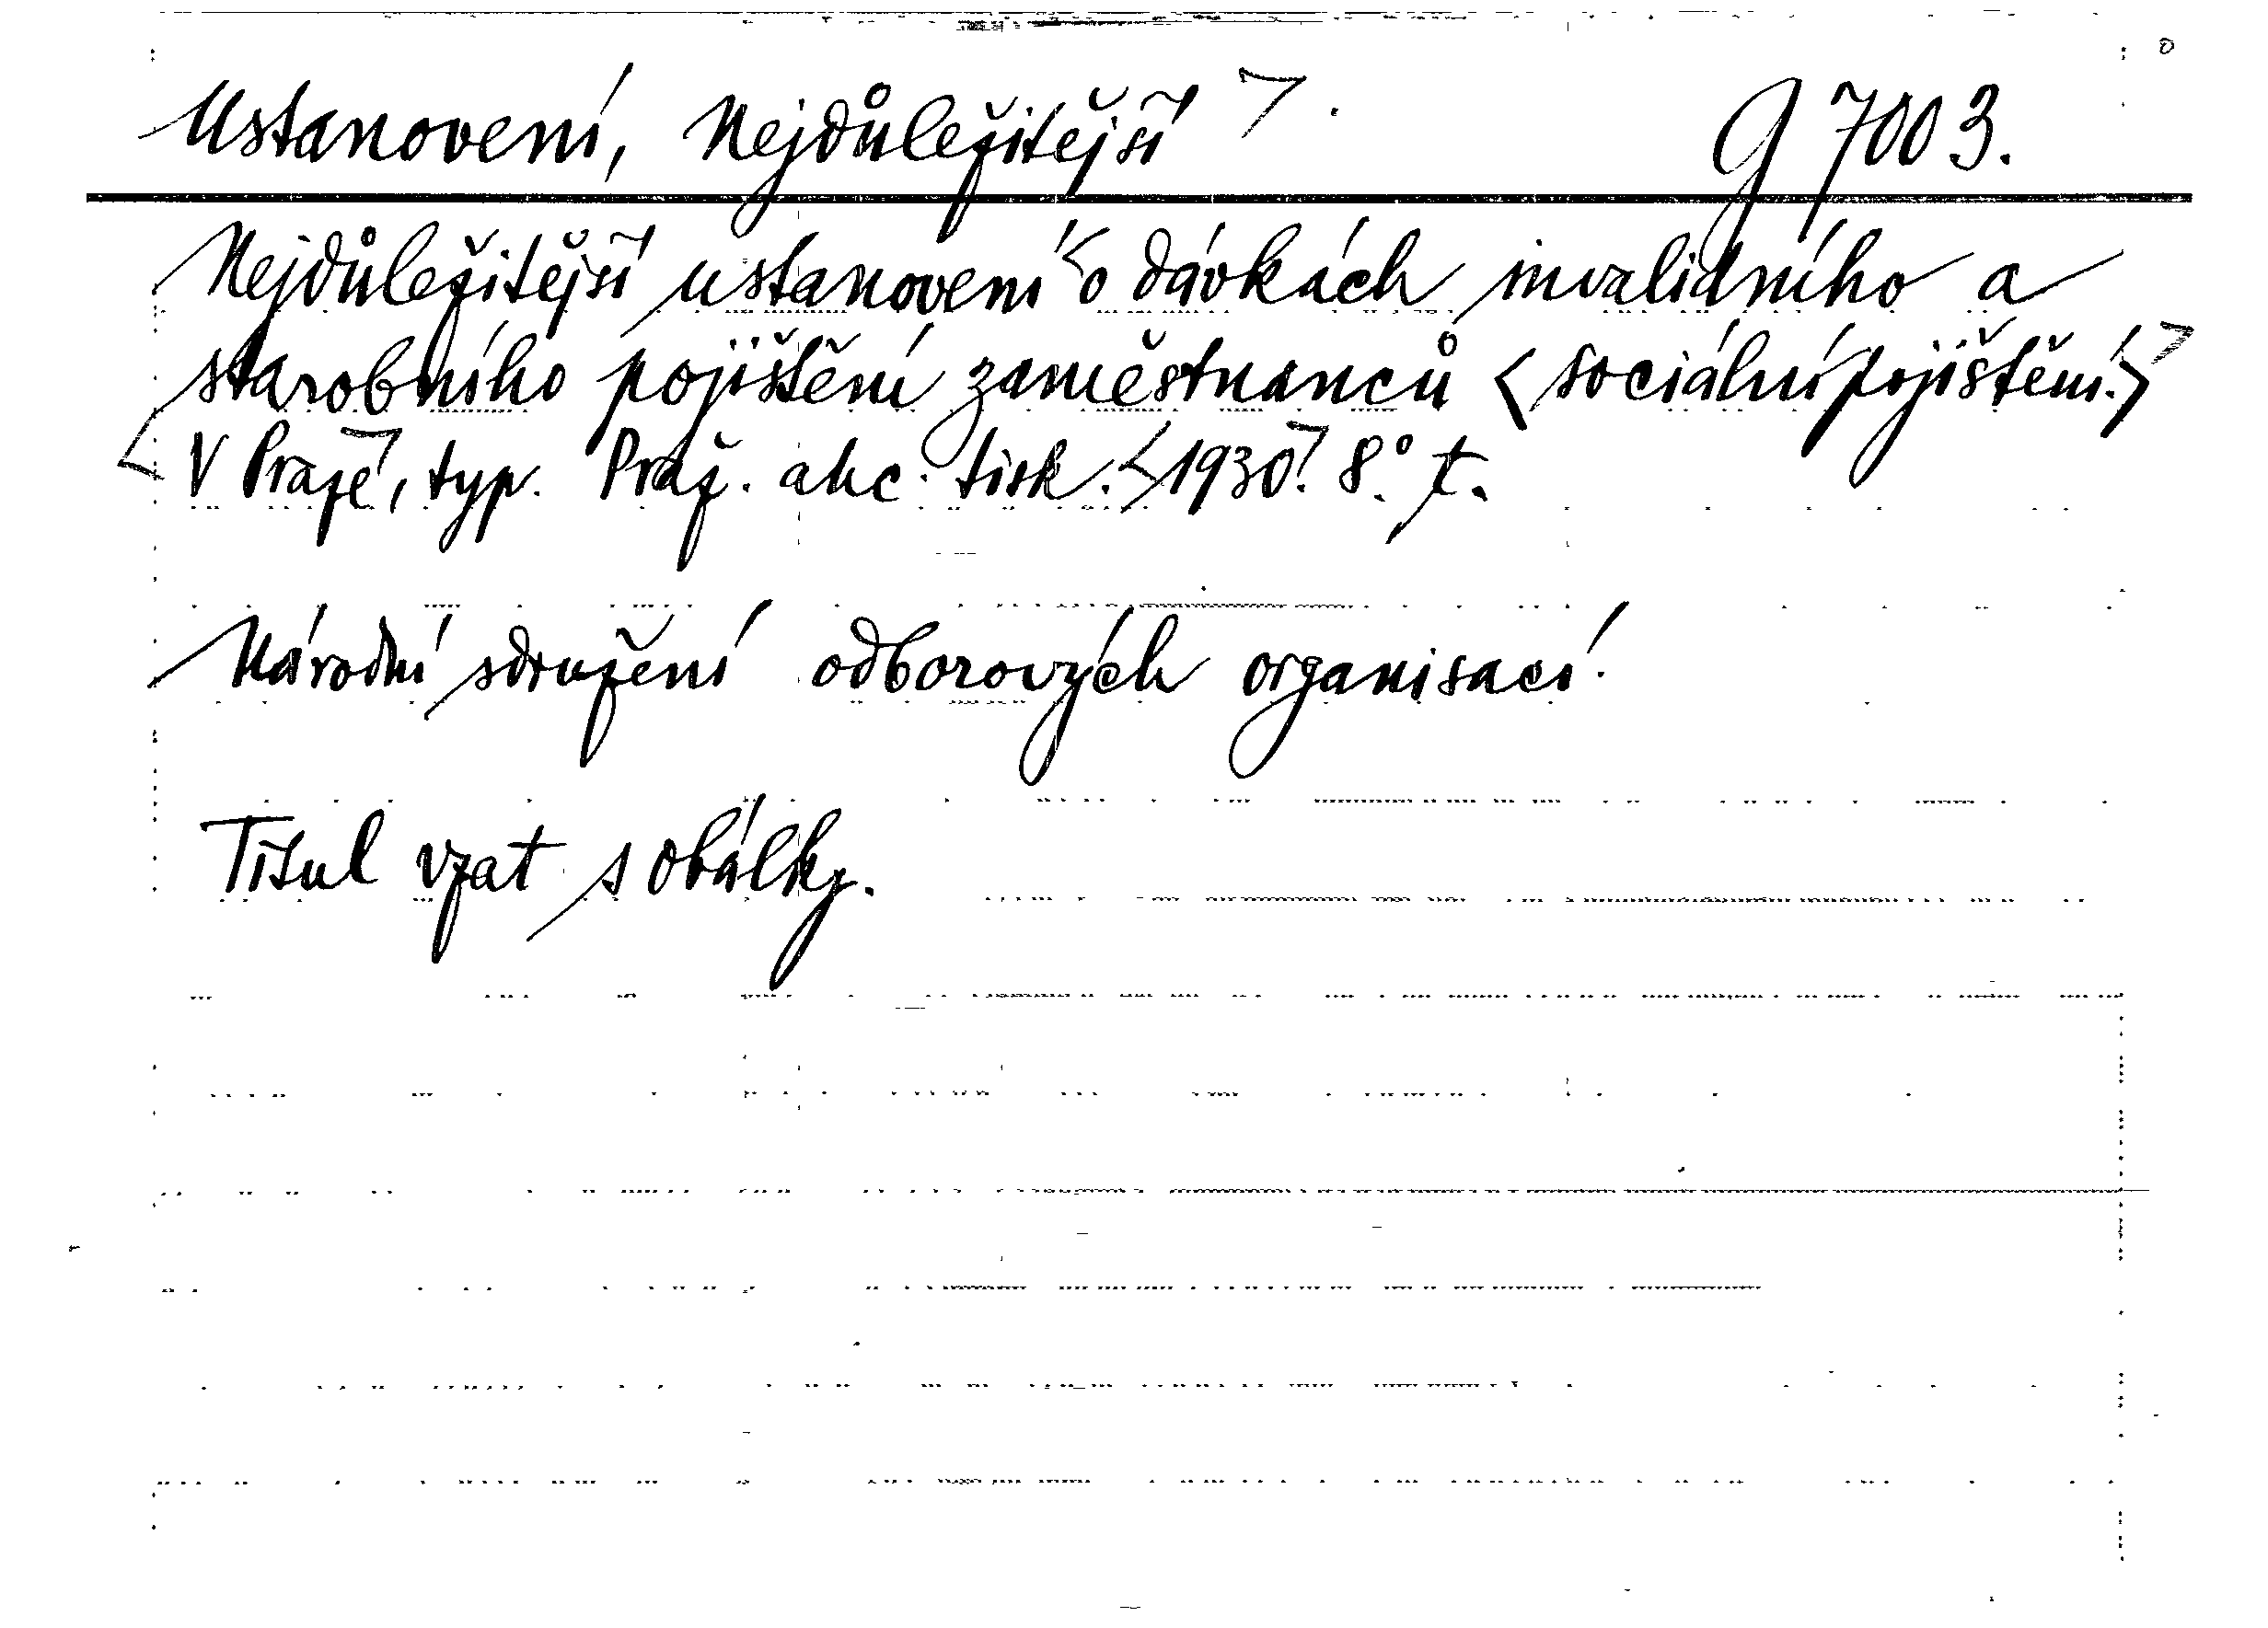 Ustanovení, Nejdůležitější >. G 7003.
Nejdůležitější ustanovení <o dávkách invalidního a
starobního pojištění zaměstnanců <sociální pojištění.>>
<V Praze>, typ. Praž. akc. tisk. <1930>. 8°. t.
Národní sdružení odborových organisací.
Titul vzat s obálky.